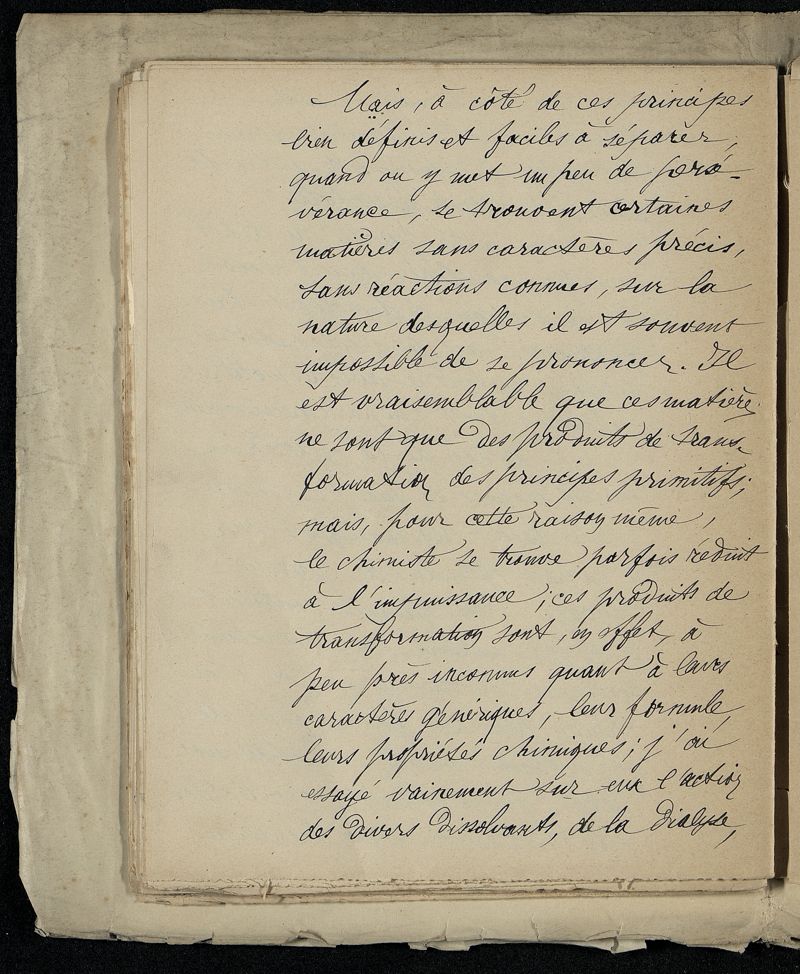 Mais, à côté de ces principes
bien définis et faciles à séparer,
quand on y met un peu de persé-
vérance, se trouvent certaines
matières sans caractères précis,
sans réactions connues, sur la
nature desquelles il est souvent
impossible de se prononcer. Il
est vraisemblable que ces matières
ne sont que des produits de trans-
formation des principes primitifs;
mais, pour cette raison même,
le chimiste se trouve parfois réduit
à l'impuissance; ces produits de
transformation sont, en effet, à
peu près inconnus quant à leurs
caractères génériques, leur formule,
leurs propriétés chimiques; j'ai
essayé vainement sur eux l'action
des divers dissolvants, de la dialyse,